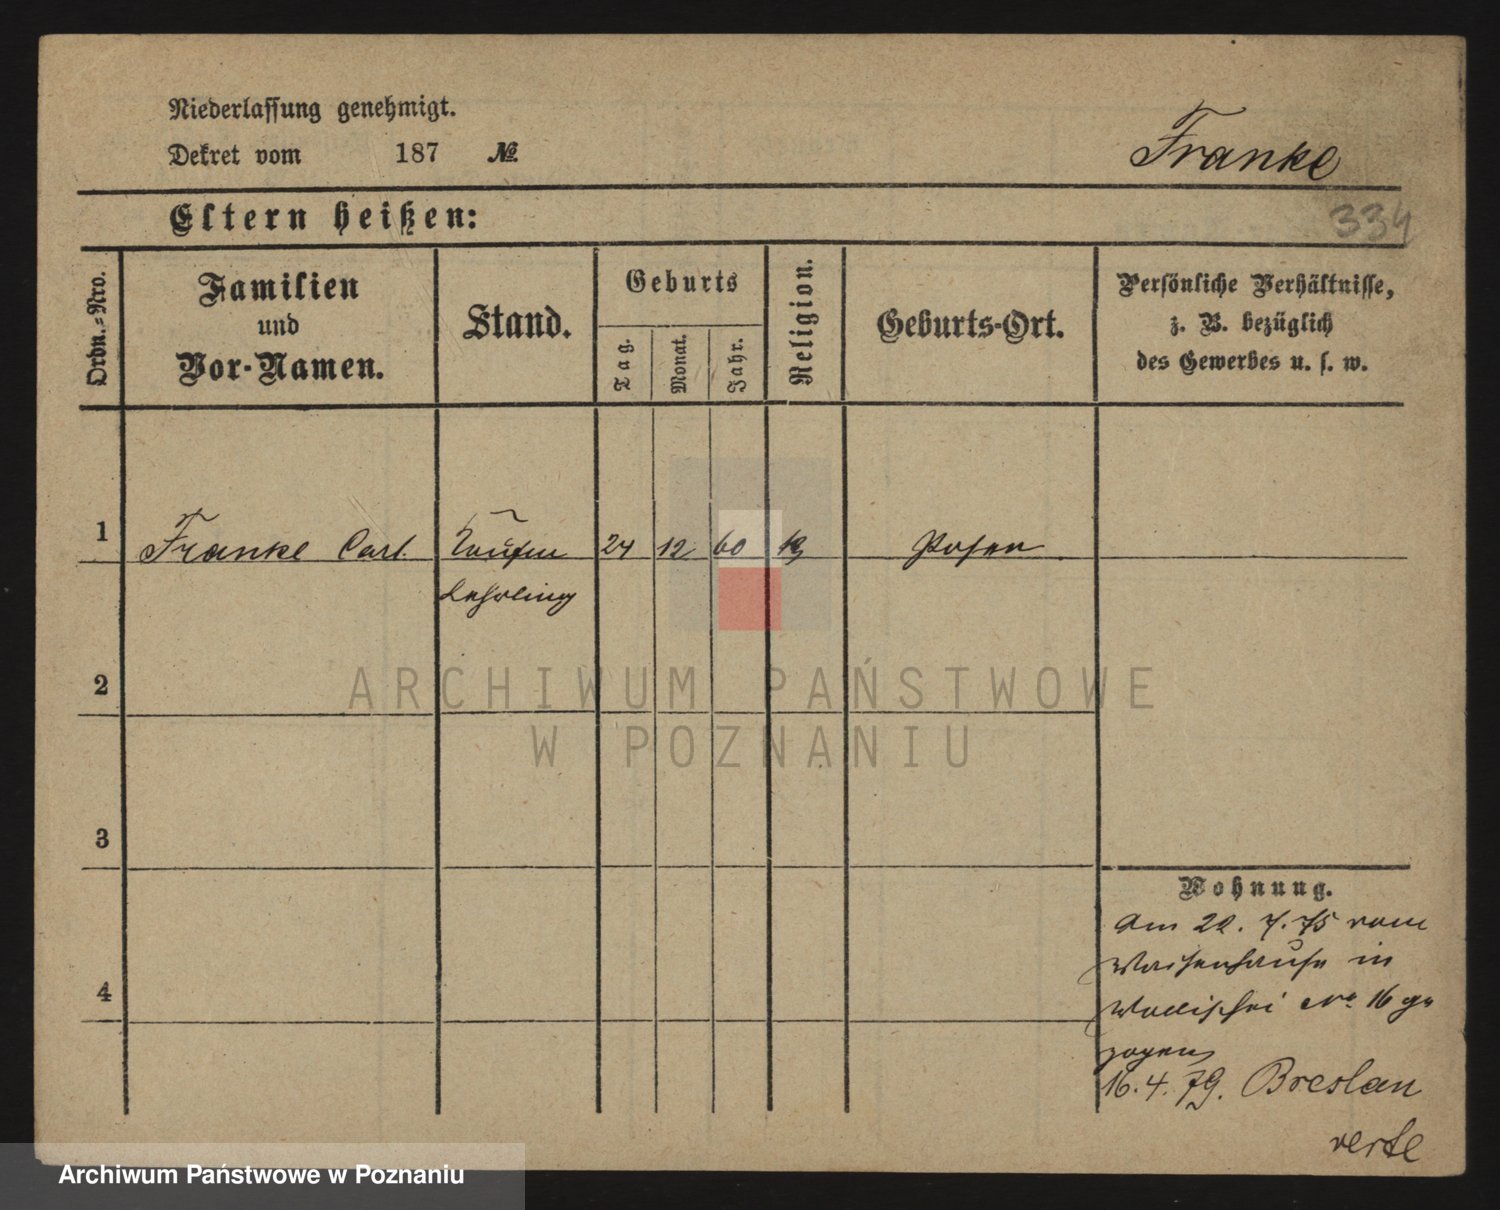 Niederlassung genehmigt.
Dekret vom 187 №
Franke
334
Eltern heißen:
Ordn.-Nro.
Familien
und
Vor-Namen.
Stand.
Geburts
Tag.
Monat.
Jahr.
Religion.
Geburts-Ort.
Persönliche Verhältnisse,
z. B. bezüglich
des Gewerbes u. s. w.
1 Franke Carl. Kaufm 24 12 60 Posen
Lehrling
2
ARCHIWUM PAŃSTWOWE
W POZNANIU
3
Wohnung.
Am 22. 7. 75 vom
Waisenhause in
Wallischei No 16 ge
zogen
4
16. 4. 79. Breslau
verte
Archiwum Państwowe w Poznaniu